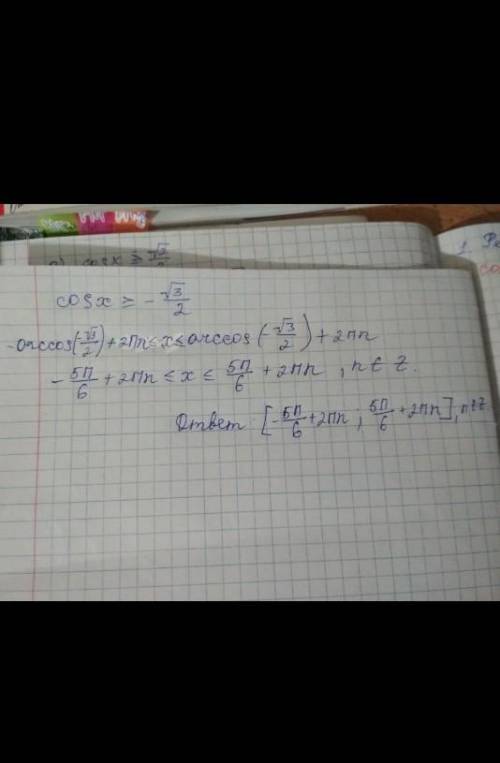 cosx ≥ √3/2
1. Ре
cosx ≥ -√3/2
-arccos(-√3/2)+2πn≤x≤arccos(-√3/2)+2πn
-5π/6+2πn ≤ x ≤ 5π/6+2πn, n∈Z.
Ответ [-5π/6+2πn; 5π/6+2πn], n∈Z